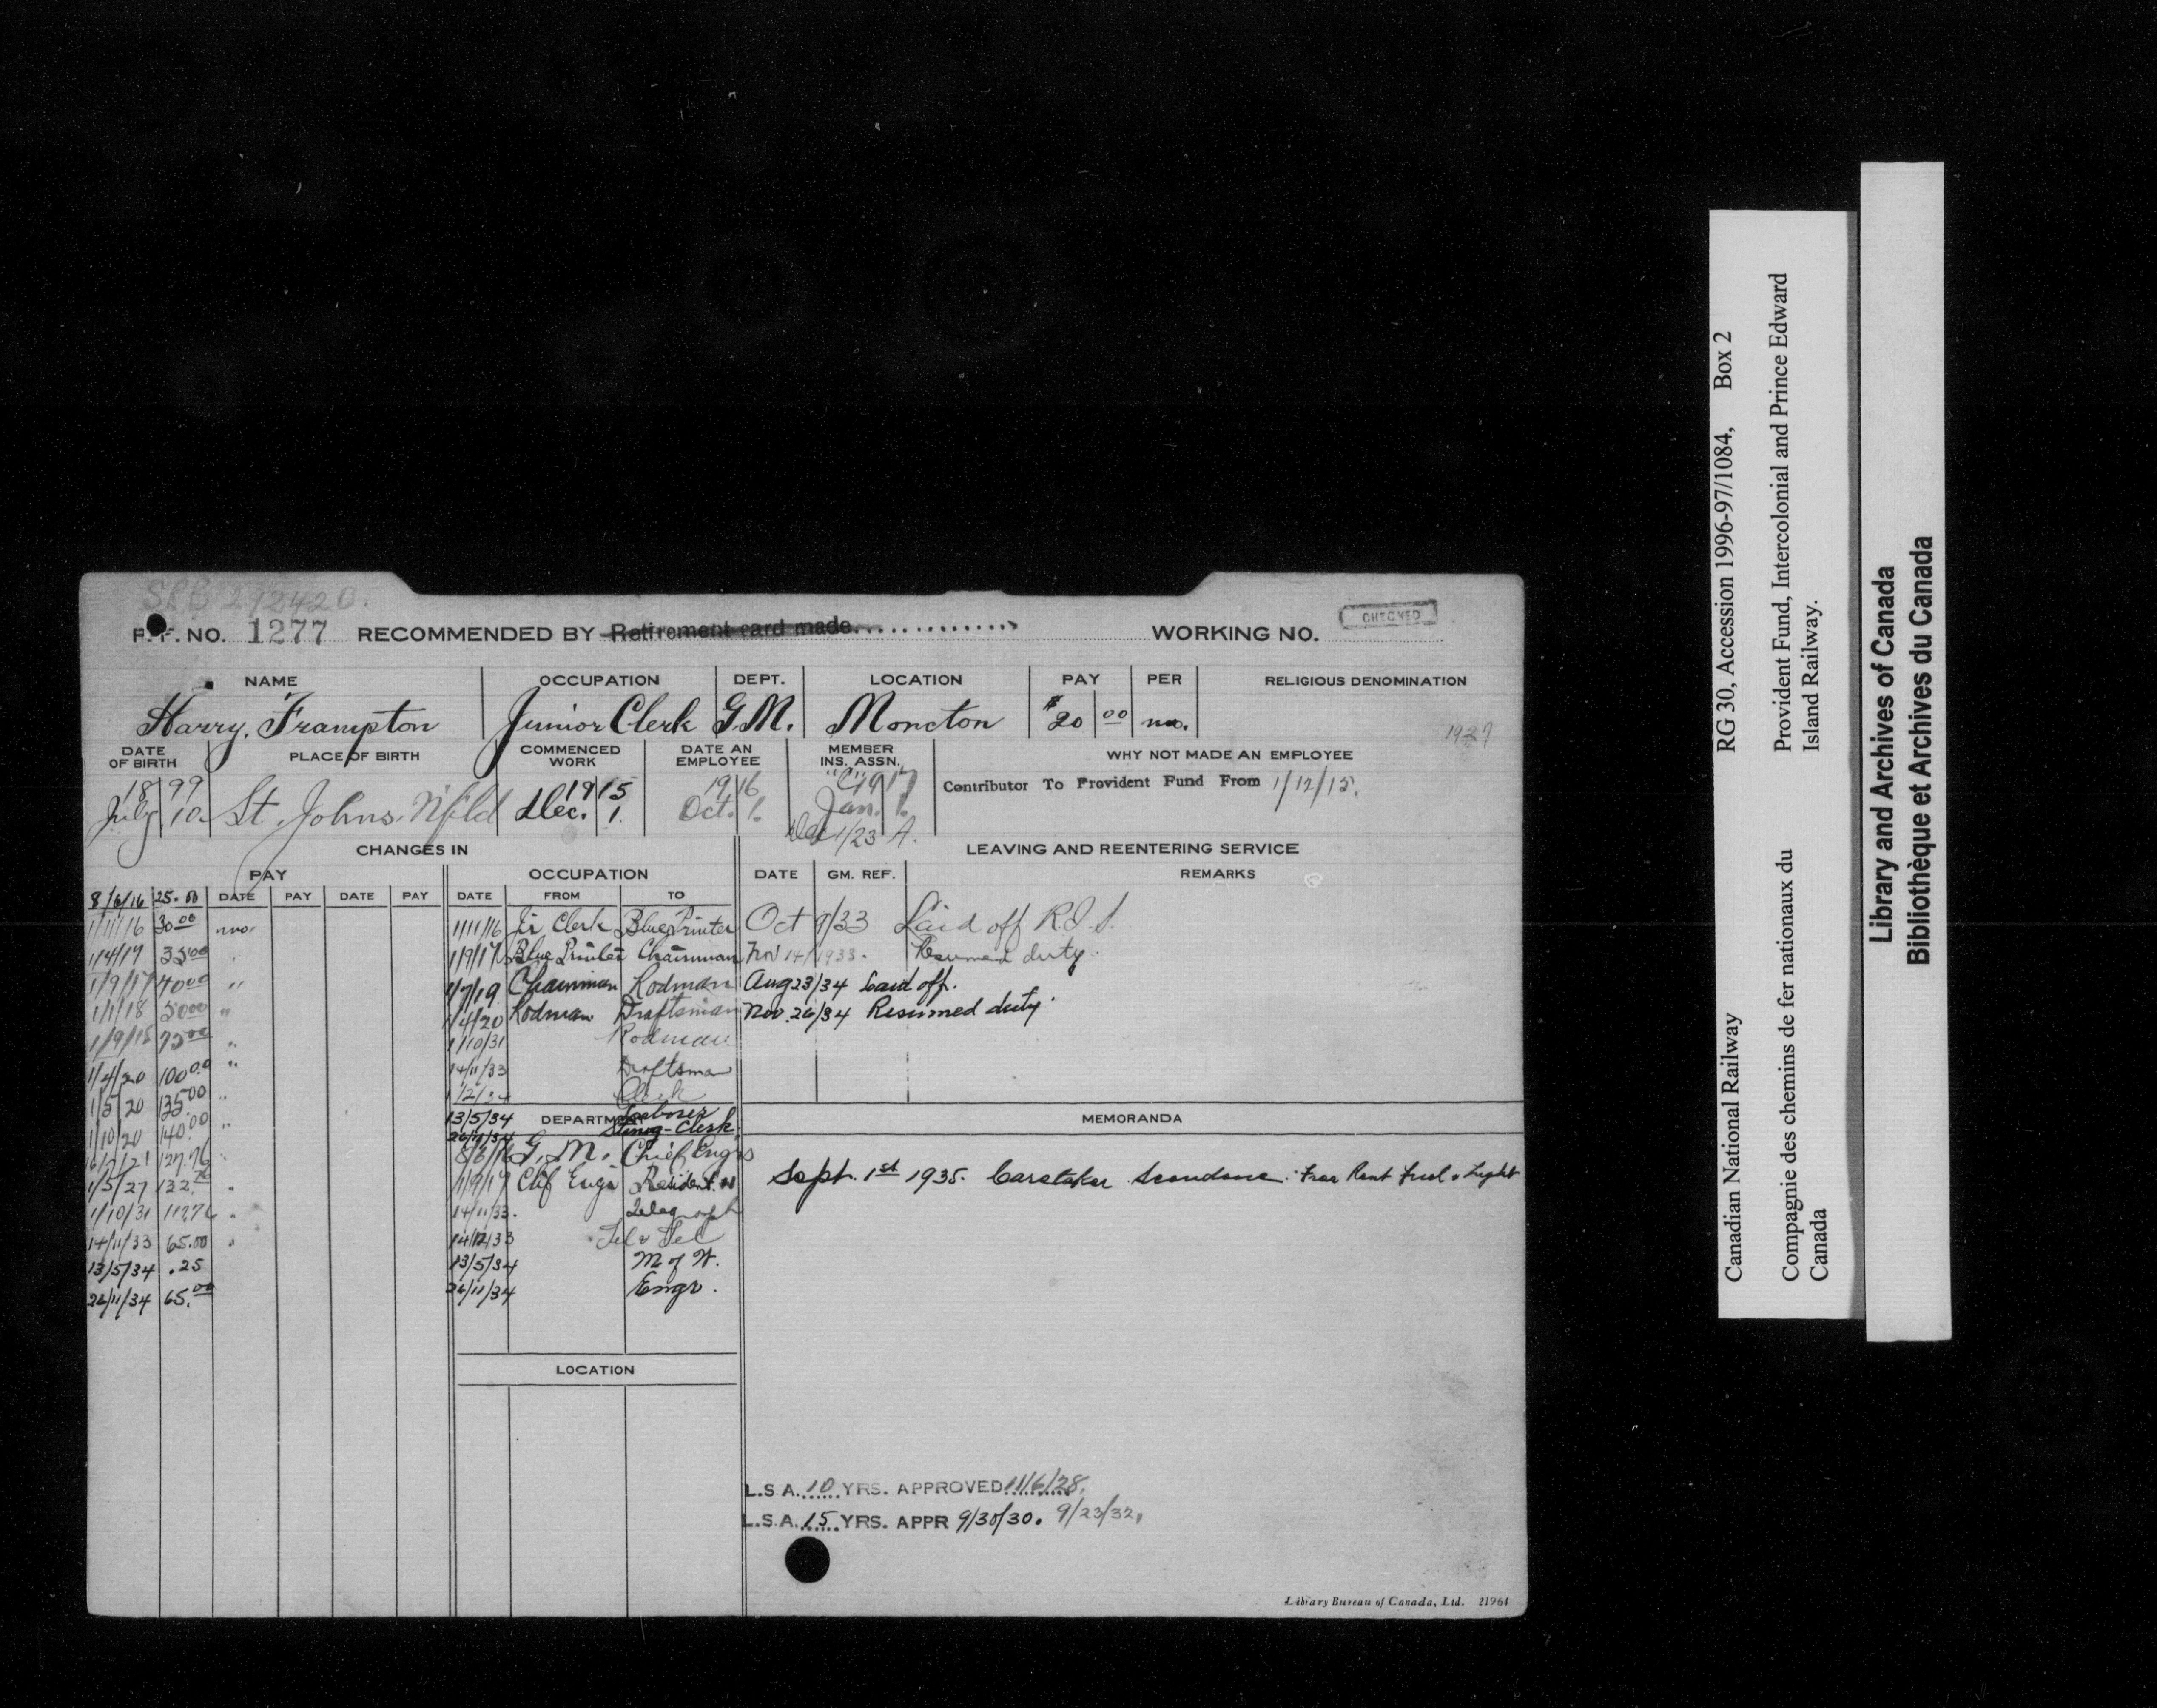 SRB 292420.
P.F. NO. 1277 RECOMMENDED BY Retirement card made. WORKING NO. CHECKED
NAME OCCUPATION DEPT. LOCATION PAY PER RELIGIOUS DENOMINATION
Harry, Frampton Junior Clerk G.M. Moncton $20 00 mo.
1937
DATE OF BIRTH PLACE OF BIRTH COMMENCED WORK DATE AN EMPLOYEE MEMBER INS. ASSN. WHY NOT MADE AN EMPLOYEE
1899 July 10 St. Johns. Nfld 1915 Dec. 1. 1916 Oct. 1. "C" 1917 Jan. 1. Contributor To Provident Fund From 1/12/15.
Dec 1/23 A.
CHANGES IN LEAVING AND REENTERING SERVICE
PAY OCCUPATION DATE GM. REF. REMARKS
DATE PAY DATE PAY DATE FROM TO
8/6/16 25.00
1/11/16 30 00 mo.
1/4/17 35 00 "
1/9/17 40 00 "
1/1/18 50 00 "
1/9/18 75 00 "
1/4/20 100 00 "
1/5/20 135 00 "
1/10/20 140.00 "
127.76 "
1/5/27 132.76 "
1/10/31 117.76 "
14/11/33 65.00 "
13/5/34 .25
26/11/34 65.00
1/11/16 Jr Clerk Blue Printer
1/9/17 Blue Printer Chainman
1/7/19 Chainman Rodman
1/4/20 Rodman Draftsman
1/10/31 Rodman
14/11/33 Draftsman
1/2/34 Clerk
13/5/34 Laborer
26/11/34 Stenog-Clerk
DEPARTMENT
8/6/16 G.M. Chief Engrs
1/9/17 Chf Engr Resident
14/11/33. Telegraph
14/12/33 Tel & Tel
13/5/34 M of W.
26/11/34 Engr.
LOCATION
Oct 9/33 Laid off R.I.S.
Nov 14/1933. Resumed duty.
Aug 23/34 Laid off.
Nov. 26/34 Resumed duty.
MEMORANDA
Sept. 1st 1935. Caretaker Scoudouc. Free Rent Fuel & Light
L.S.A. 10 YRS. APPROVED 11/6/28.
L.S.A. 15 YRS. APPR 9/30/30. 9/23/32.
Library Bureau of Canada, Ltd. 21964
Canadian National Railway RG 30, Accession 1996-97/1084, Box 2
Compagnie des chemins de fer nationaux du Provident Fund, Intercolonial and Prince Edward
Canada Island Railway.
Library and Archives of Canada
Bibliothèque et Archives du Canada